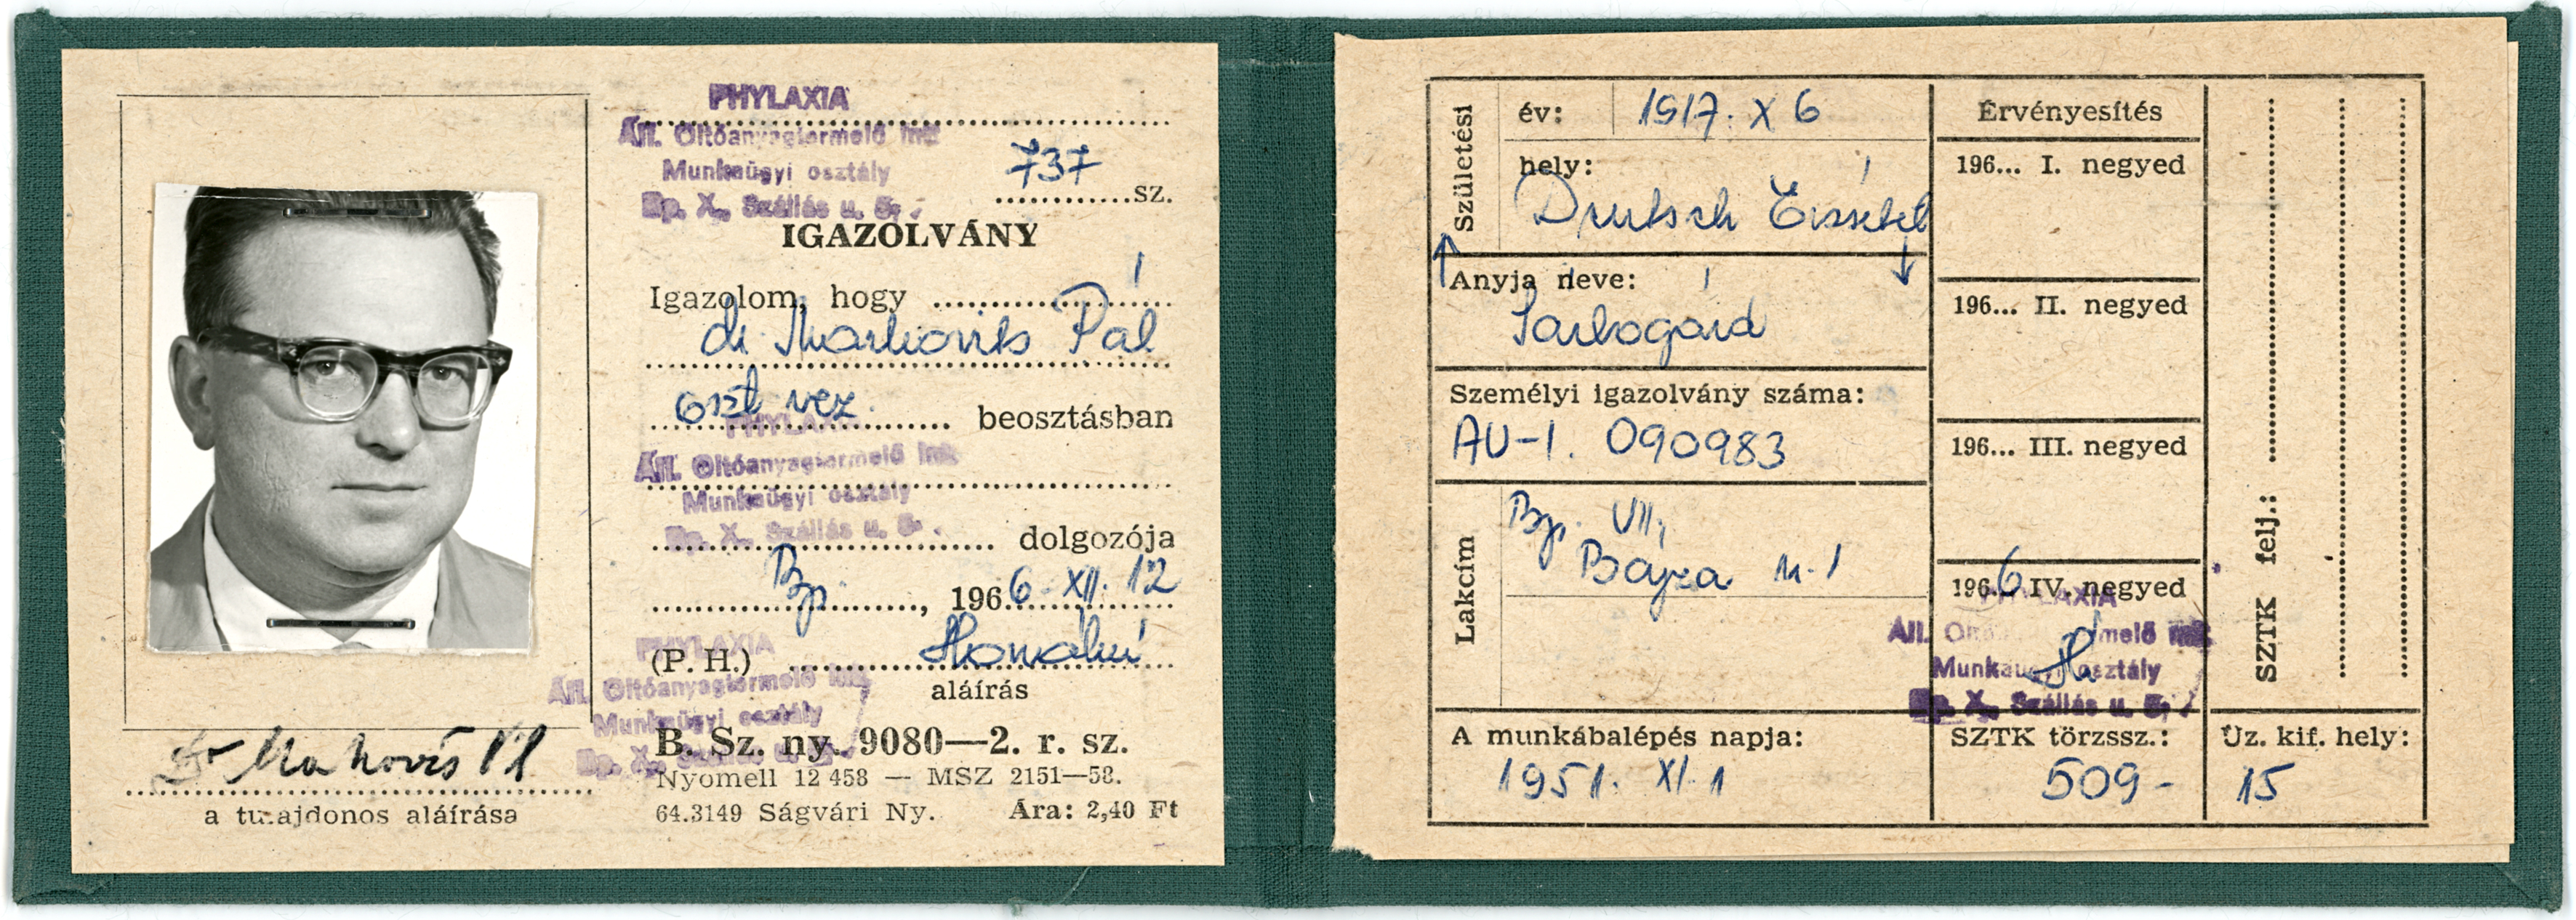 PHYLAXIA
Áll. Oltóanyagtermelő Int.
Munkaügyi osztály
Bp. X., Szállás u. 5.
737 sz.
IGAZOLVÁNY
Igazolom, hogy
dr Markovits Pál
oszt vez. beosztásban
PHYLAXIA
Áll. Oltóanyagtermelő Int.
Munkaügyi osztály
Bp. X., Szállás u. 5.
dolgozója
Bp., 1966. XII. 12
(P. H.)
aláírás
PHYLAXIA
Áll. Oltóanyagtermelő Int.
Munkaügyi osztály
Bp. X., Szállás u. 5.
B. Sz. ny. 9080—2. r. sz.
Nyomell 12 458 — MSZ 2151—58.
64.3149 Ságvári Ny. Ára: 2,40 Ft
Dr Markovits Pál
a tulajdonos aláírása
Születési
év: 1917. X 6
hely:
Deutsch Erzsébet
Anyja neve:
Sárbogárd
Személyi igazolvány száma:
AU-I. 090983
Lakcím
Bp. VII,
Bajza u. 1
A munkábalépés napja:
1951. XI. 1
Érvényesítés
196... I. negyed
196... II. negyed
196... III. negyed
1966 IV. negyed
PHYLAXIA
Áll. Oltóanyagtermelő Int.
Munkaügyi osztály
Bp. X., Szállás u. 5.
SZTK törzssz.:
509-
SZTK felj.:
Üz. kif. hely:
15